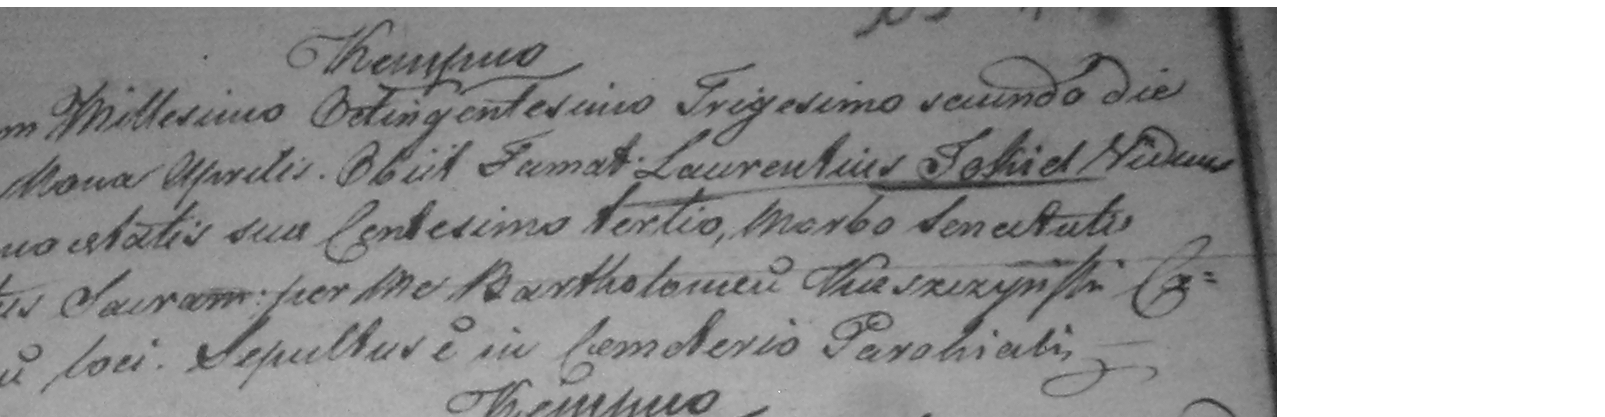 Kempno
m Millesimo Octingentesimo Trigesimo secundo die
Nona Aprilis. Obiit Famat: Laurentius Viduus
no aetatis suae Centesimo tertio, Morbo Senectutis
is Sacram: per Me Bartholomeu Co=
u loci. Sepultus e in Cemeterio Parohialis
Kempno